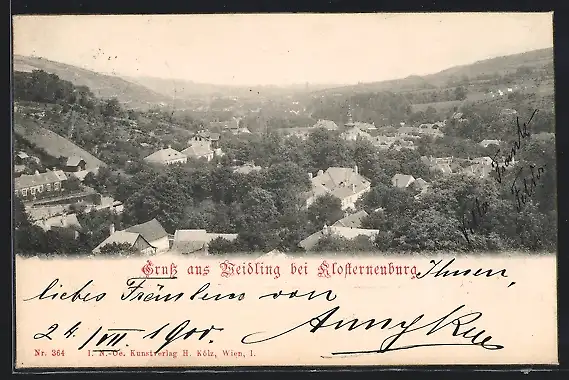 Gruß aus Weidling bei Klosterneuburg
Ihnen,
liebes Fräulein von
24./VII. 1900.
Anny Kue
Nr. 364 I. N.-Oe. Kunstverlag H. Kölz, Wien, I.